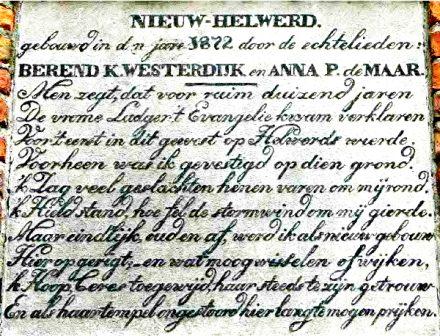 NIEUW-HELWERD.
gebouwd in d'n jare 1872 door de echtelieden:
BEREND K. WESTERDIJK en ANNA P. de MAAR.
Men zegt, dat voor ruim duizend jaren
De vrome Ludger 't Evangelie kwam verklaren
Voor 't eerst in dit gewest op Helwerds wierde;
Voorheen was ik gevestigd op dien grond.
'k Zag veel geslachten henen varen om mij rond,
'k Hield stand, hoe fel de stormwind om mij gierde.
Maar eindlijk, oud en af, werd ik als nieuw gebouw
Hier opgerigt; en wat moog wisselen of wijken,
'k Hoop, Ceres toegewijd, haar steeds te zijn getrouw
En als haar tempel ongestoord hier lang te mogen prijken.